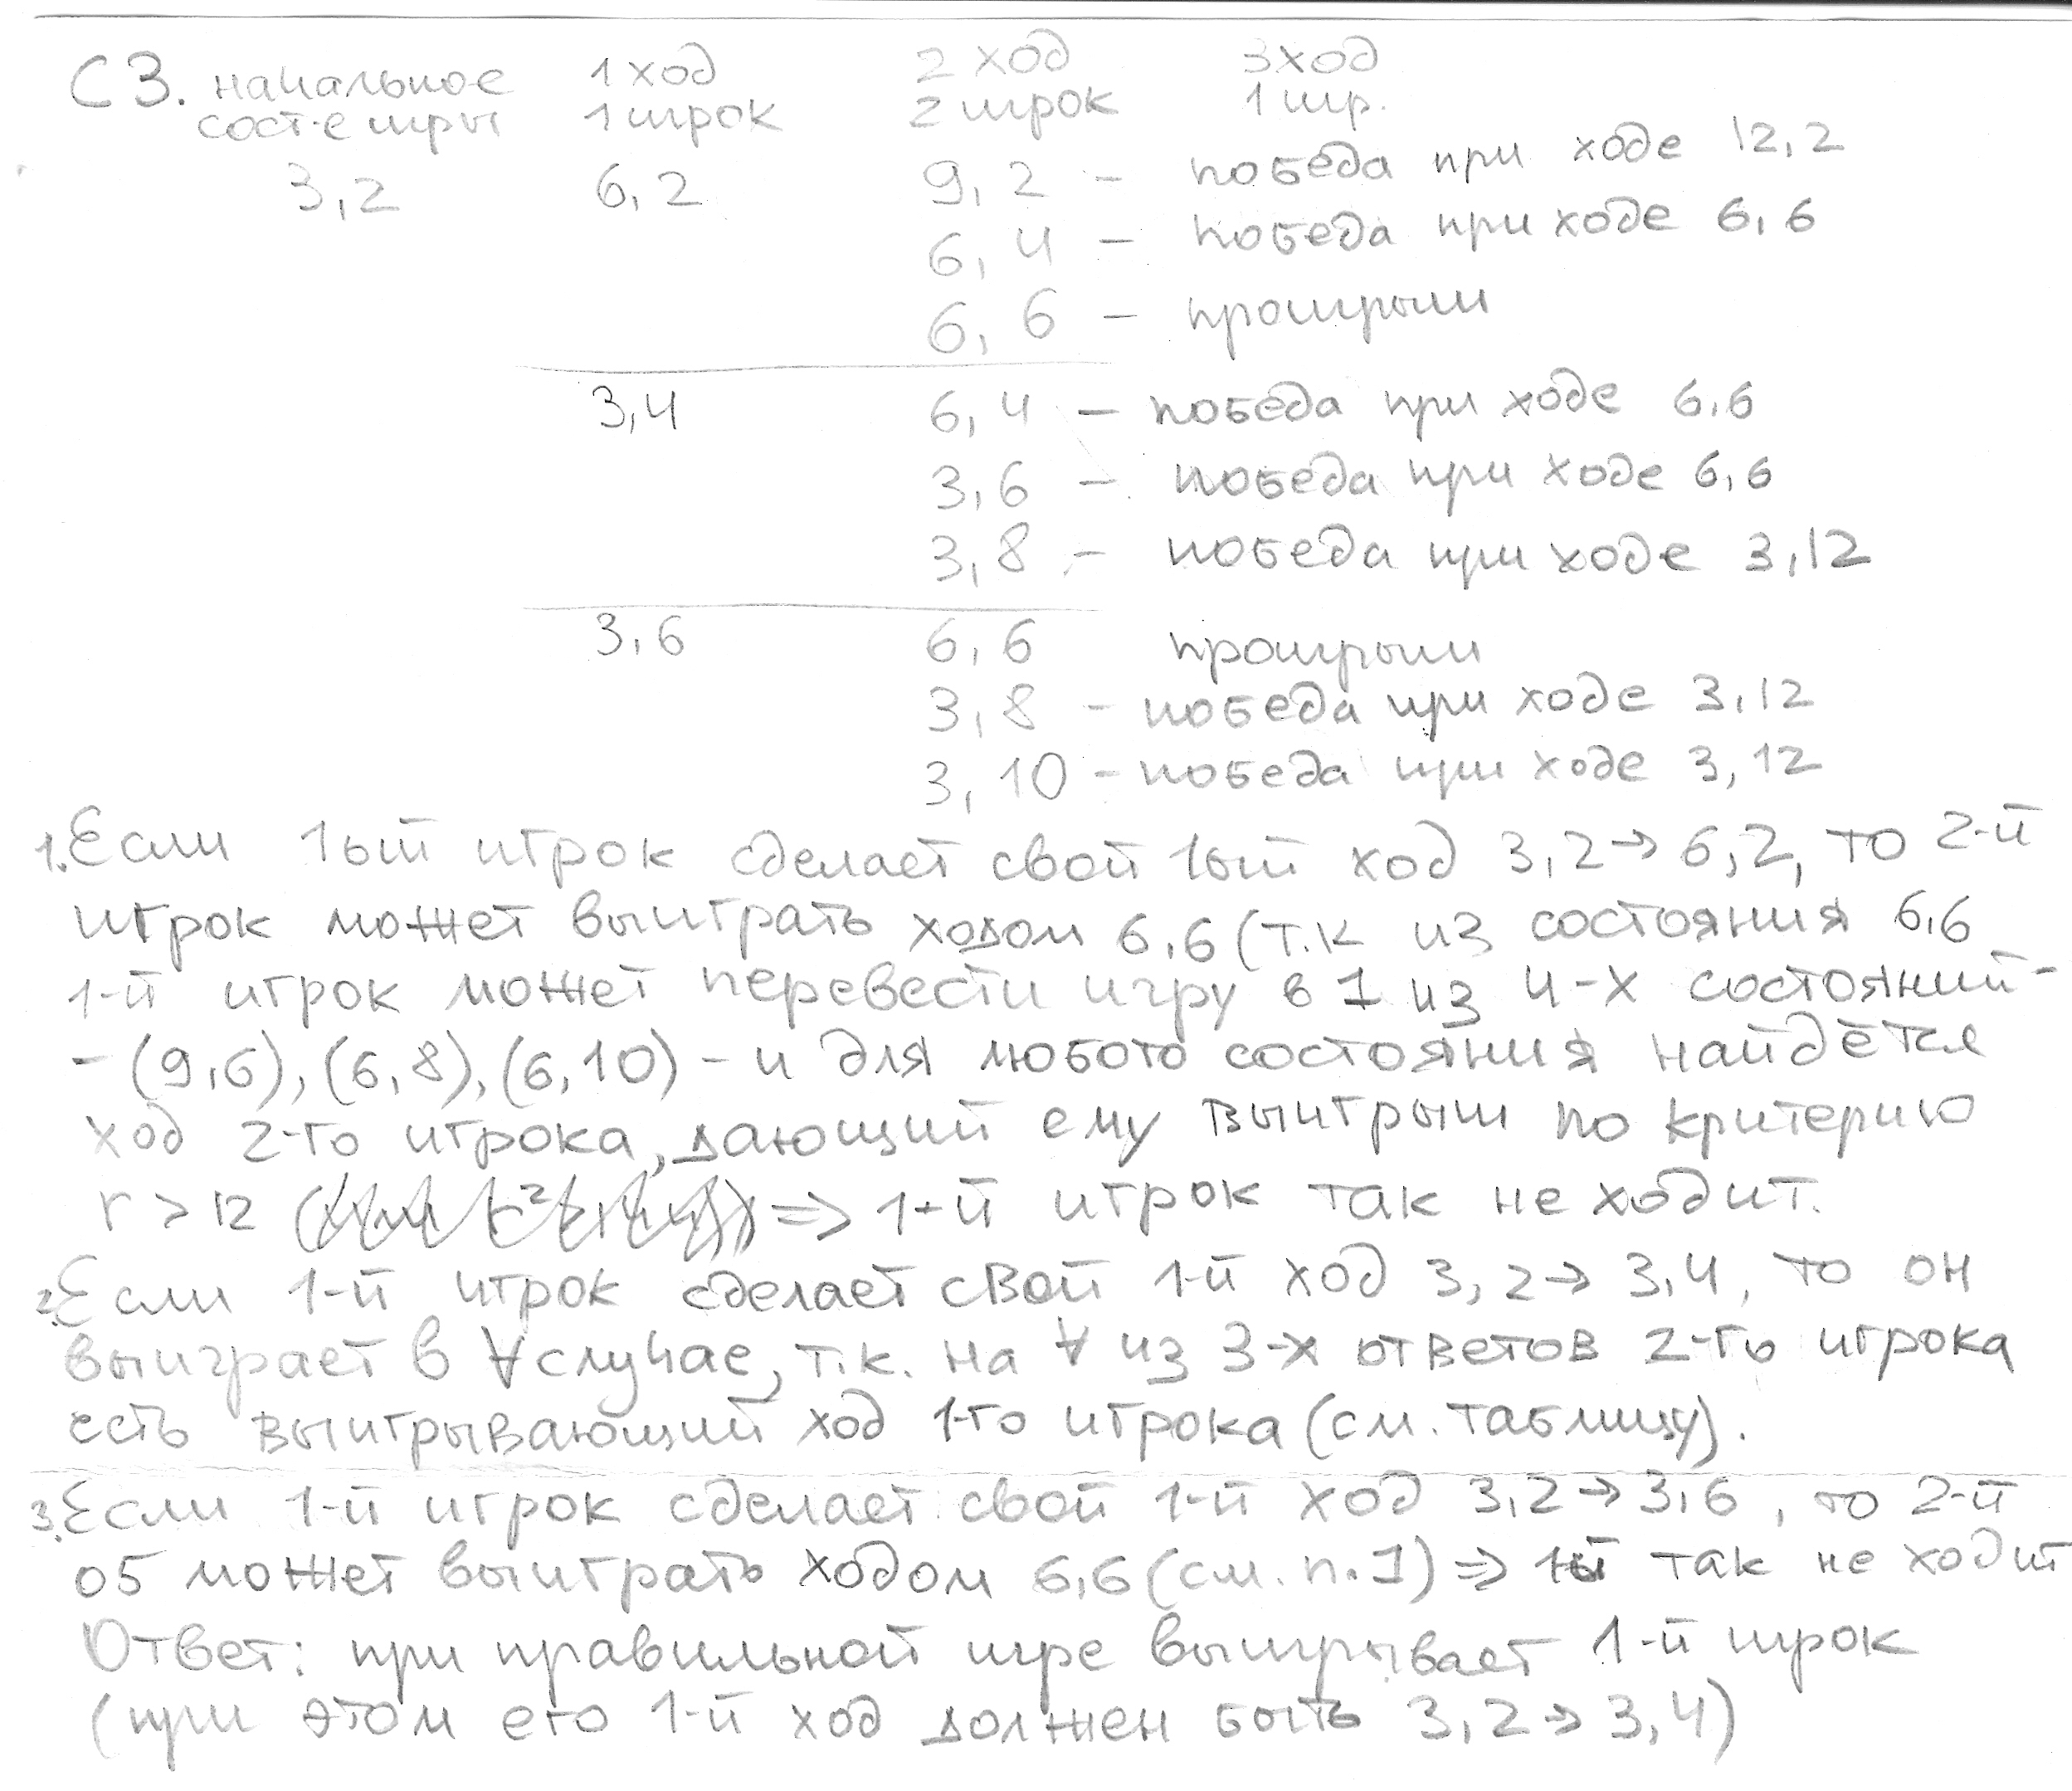 С3. начальное 1 ход 2 ход 3 ход
сост-е игры 1 игрок 2 игрок 1 игр.
3,2 6,2 9,2 – победа при ходе 12,2
6,4 – победа при ходе 6,6
6,6 – проигрыш
3,4 6,4 – победа при ходе 6,6
3,6 – победа при ходе 6,6
3,8 – победа при ходе 3,12
3,6 6,6 проигрыш
3,8 – победа при ходе 3,12
3,10 – победа при ходе 3,12
1. Если 1ый игрок сделает свой 1ый ход 3,2→6,2, то 2-й
игрок может выиграть ходом 6,6 (т.к из состояния 6,6
1-й игрок может перевести игру в 1 из 4-х состояний -
- (9,6), (6,8), (6,10) – и для любого состояния найдётся
ход 2-го игрока, дающий ему выигрыш по критерию
r > 12 => 1-й игрок так не ходит.
2. Если 1-й игрок сделает свой 1-й ход 3,2→3,4, то он
выиграет в ∀ случае, т.к. на ∀ из 3-х ответов 2-го игрока
есть выигрывающий ход 1-го игрока (см. таблицу).
3. Если 1-й игрок сделает свой 1-й ход 3,2→3,6, то 2-й
об может выиграть ходом 6,6 (см. п.1) => 1ый так не ходит
Ответ: при правильной игре выигрывает 1-й игрок
(при этом его 1-й ход должен быть 3,2→3,4)